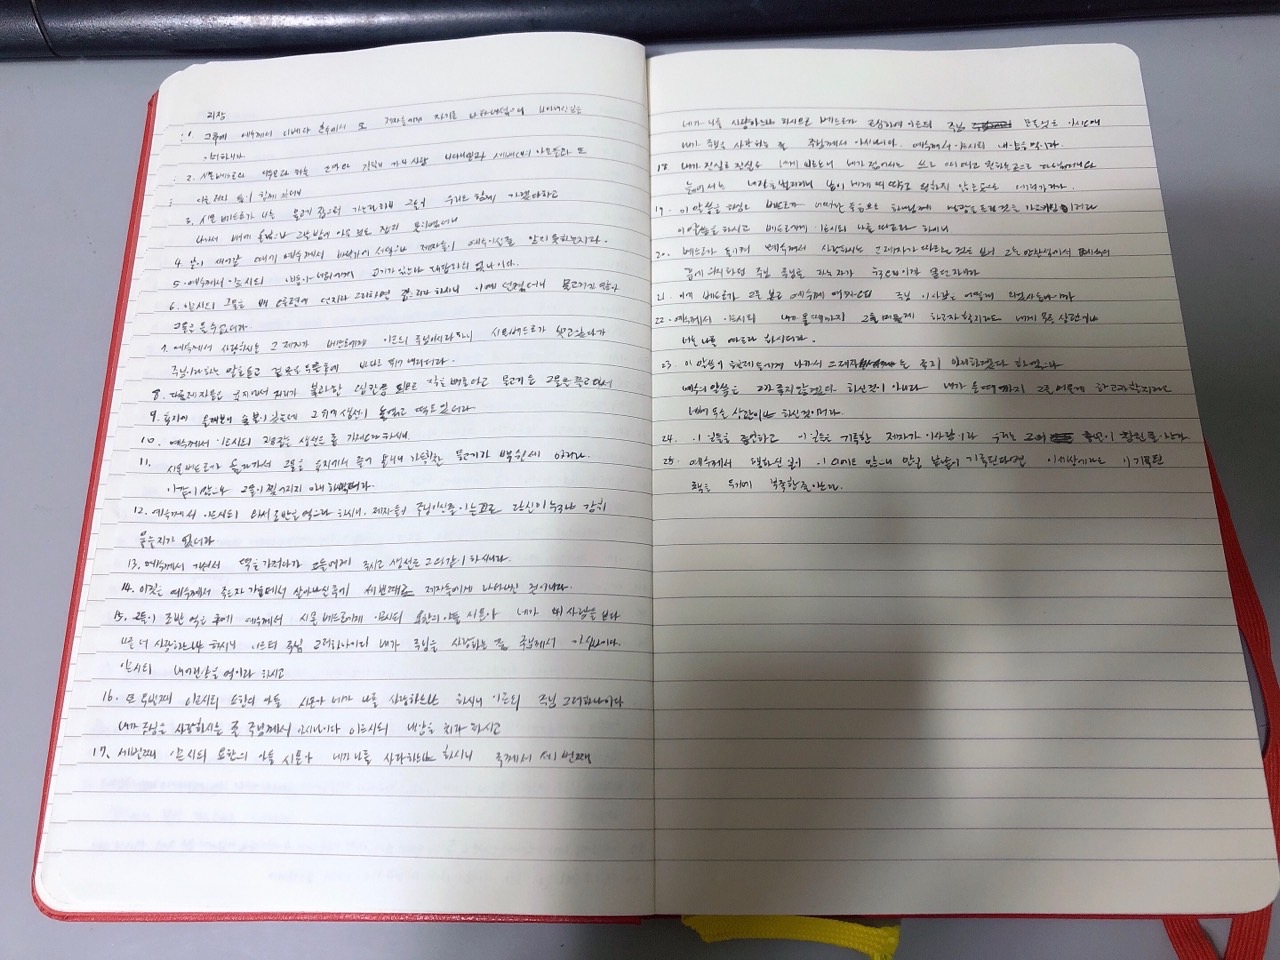 21장
1. 그후에 예수께서 디베랴 호수에서 또 제자들에게 자기를 나타내셨으니 나타내신 일은
이러하니라
2. 시몬 베드로와 디두모라 하는 도마와 갈릴리 가나 사람 나다나엘과 세베대의 아들들과 또
다른 제자 둘이 함께 있더니
3. 시몬 베드로가 나는 물고기 잡으러 가노라 하니 그들이 우리도 함께 가겠다 하고
나가서 배에 올랐으나 그날 밤에 아무것도 잡지 못하였더니
4. 날이 새어갈 때에 예수께서 바닷가에 서셨으나 제자들이 예수이신줄 알지 못하는지라.
5. 예수께서 이르시되 얘들아 너희에게 고기가 있느냐 대답하되 없나이다.
6. 이르시되 그물을 배 오른편에 던지라 그리하면 잡으리라 하시니 이에 던졌더니 물고기가 많아
그물을 들 수 없더라.
7. 예수께서 사랑하시는 그 제자가 베드로에게 이르되 주님이시라 하니 시몬 베드로가 벗고 있다가
주님이라 하는 말을 듣고 겉옷을 두른 후에 바다로 뛰어 내리더라.
8. 다른 제자들은 육지에서 거리가 불과 한 오십칸쯤 되므로 작은 배를 타고 물고기 든 그물을 끌고 와서
9. 육지에 올라보니 숯불이 있는데 그 위에 생선이 놓였고 떡도 있더라
10. 예수께서 이르시되 지금 잡은 생선을 좀 가져오라 하시니.
11. 시몬 베드로가 올라가서 그물을 육지에서 끌어 올리니 가득한 물고기가 백쉰세 마리라.
이같이 많으나 그물이 찢어지지 아니하였더라.
12. 예수께서 이르시되 와서 조반을 먹으라 하시니. 제자들이 주님이신줄 아는고로 당신이 누구냐 감히
묻는자가 없더라
13. 예수께서 가셔서 떡을 가져다가 그들에게 주시고 생선도 그와 같이 하시니라.
14. 이것은 예수께서 죽은자 가운데서 살아나신 후에 세번째로 제자들에게 나타나신 것이니라.
15. 그들이 조반 먹은 후에 예수께서 시몬 베드로에게 이르시되 요한의 아들 시몬아 네가 이 사람들 보다
나를 더 사랑하느냐 하시니 이르되 주님 그러하나이다 내가 주님을 사랑하는 줄 주님께서 아시나이다.
이르시되 내 어린양을 먹이라 하시고
16. 또 두번째 이르시되 요한의 아들 시몬아 네가 나를 사랑하느냐 하시니 이르되 주님 그러하나이다
내가 주님을 사랑하시는 줄 주님께서 아시나이다 이르시되 내 양을 치라 하시고
17. 세번째 이르시되 요한의 아들 시몬아 네가 나를 사랑하느냐 하시니 주께서 세 번째
네가 나를 사랑하느냐 하시므로 베드로가 근심하여 이르되 주님 모든것을 아시오매
내가 주님을 사랑하는 줄 주님께서 아시나이다. 예수께서 이르시되 내 양을 먹이라.
18. 내가 진실로 진실로 네게 이르노니 네가 젊어서는 스스로 띠 띠고 원하는 곳으로 다녔거니와
늙어서는 네 팔을 벌리리니 남이 네게 띠 띠우고 원하지 않는 곳으로 데려가리라.
19. 이 말씀을 하심은 베드로가 어떠한 죽음으로 하나님께 영광을 돌릴 것을 가리키심이러라
이 말씀을 하시고 베드로에게 이르시되 나를 따르라 하시니
20. 베드로가 돌이켜 예수께서 사랑하시는 그 제자가 따르는 것을 보니 그는 만찬석에서 예수의
품에 의지하여 주님 주님을 파는 자가 누구오니이까 묻던 자더라
21. 이에 베드로가 그를 보고 예수께 여짜오되 주님 이 사람은 어떻게 되겠사옵나이까
22. 예수께서 이르시되 내가 올 때까지 그를 머물게 하고자 할지라도 네게 무슨 상관이냐
너는 나를 따르라 하시더라.
23. 이 말씀이 형제들에게 나가서 그 제자는 죽지 아니하겠다 하였으나
예수의 말씀은 그가 죽지 않겠다 하신것이 아니라 내가 올 때까지 그를 머물게 하고자 할지라도
네게 무슨 상관이냐 하신것이러라.
24. 이 일들을 증언하고 이 일들을 기록한 제자가 이 사람이라 우리는 그의 증언이 참된 줄 아노라
25. 예수께서 행하신 일이 이 외에도 많으니 만일 낱낱이 기록된다면 이 세상이라도 이 기록된
책을 두기에 부족할 줄 아노라.